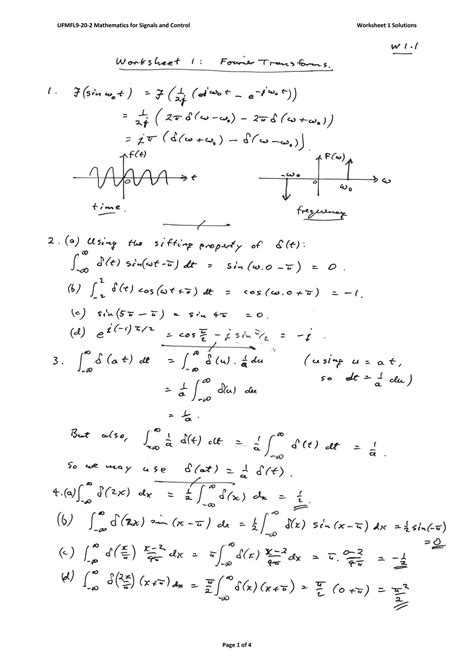 UFMFL9-20-2 Mathematics for Signals and Control Worksheet 1 Solutions
W1.1
Worksheet 1: Fourier Transforms.
1. F(sin ω₀t) = F(1/2j (e^{jω₀t} - e^{-jω₀t}))
= 1/2j (2πδ(ω-ω₀) - 2πδ(ω+ω₀))
= jπ (δ(ω+ω₀) - δ(ω-ω₀)).
f(t) F(ω)
0 t -ω₀ 0 ω₀ ω
time frequency
2. (a) Using the sifting property of δ(t):
∫_{-∞}^{∞} δ(t) sin(ωt-π) dt = sin(ω.0-π) = 0.
(b) ∫_{-2}^{2} δ(t) cos(ωt+π) dt = cos(ω.0+π) = -1.
(c) sin(5π-π) = sin 4π = 0.
(d) e^{j(-1)π/2} = cos π/2 - j sin π/2 = -j.
3. ∫_{-∞}^{∞} δ(at) dt = ∫_{-∞}^{∞} δ(u) . 1/a du (using u = at,
so dt = 1/a du)
= 1/a ∫_{-∞}^{∞} δ(u) du
= 1/a.
But also, ∫_{-∞}^{∞} 1/a δ(t) dt = 1/a ∫_{-∞}^{∞} δ(t) dt = 1/a.
So we may use δ(at) = 1/a δ(t).
4. (a) ∫_{-∞}^{∞} δ(2x) dx = 1/2 ∫_{-∞}^{∞} δ(x) dx = 1/2.
(b) ∫_{-∞}^{∞} δ(2x) sin(x-π) dx = 1/2 ∫_{-∞}^{∞} δ(x) sin(x-π) dx = 1/2 sin(-π)
= 0
(c) ∫_{-∞}^{∞} δ(x/π) x-2/4π dx = π ∫_{-∞}^{∞} δ(x) x-2/4π dx = π. 0-2/4π = -1/2
(d) ∫_{-∞}^{∞} δ(2x/π)(x+π) dx = π/2 ∫_{-∞}^{∞} δ(x)(x+π) = π/2 (0+π) = π²/2
Page 1 of 4